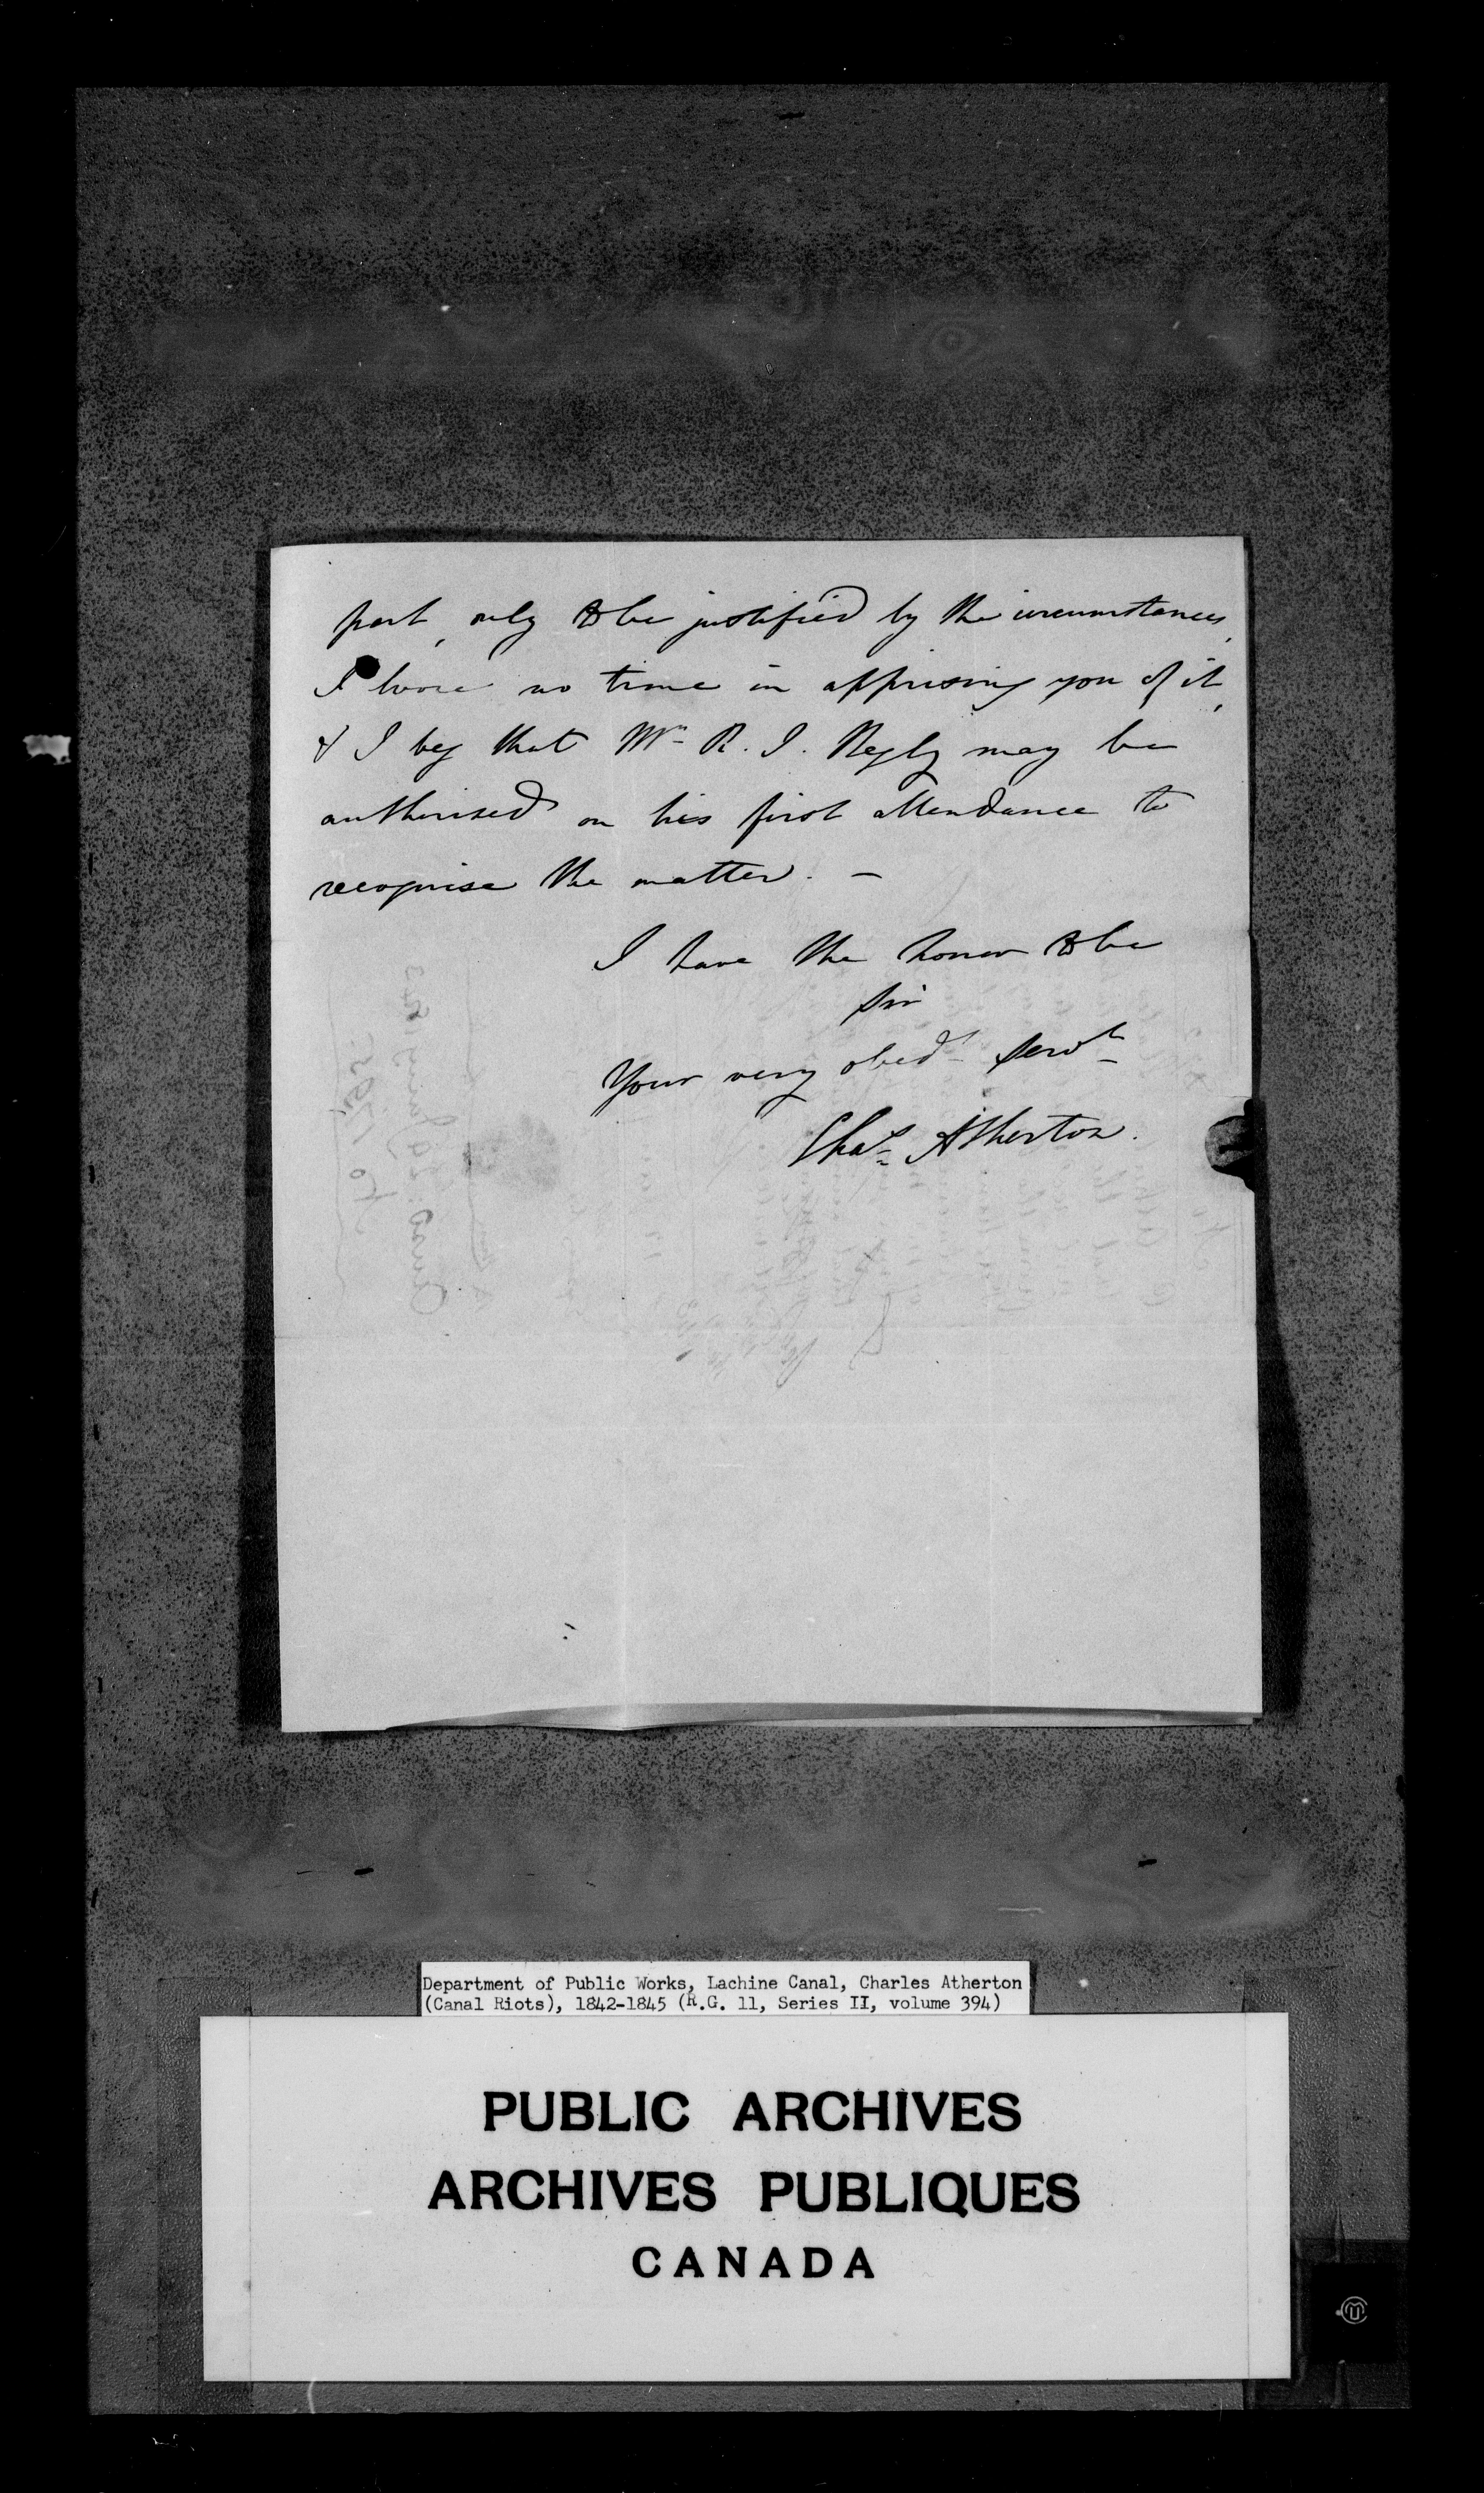 part, only to be justified by the circumstances,
I loose no time in apprising you of it,
& I beg that Mr R. J. Begly may be
authorised on his first attendance to
recognise the matter. —
I have the honor to be
Sir
Your very obedt Servt
Chas Atherton.
Department of Public Works, Lachine Canal, Charles Atherton
(Canal Riots), 1842-1845 (R.G. 11, Series II, volume 394)
PUBLIC ARCHIVES
ARCHIVES PUBLIQUES
CANADA